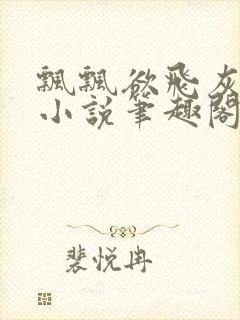 飄飄欲飛灰
小説筆趣閣
裴悦冉